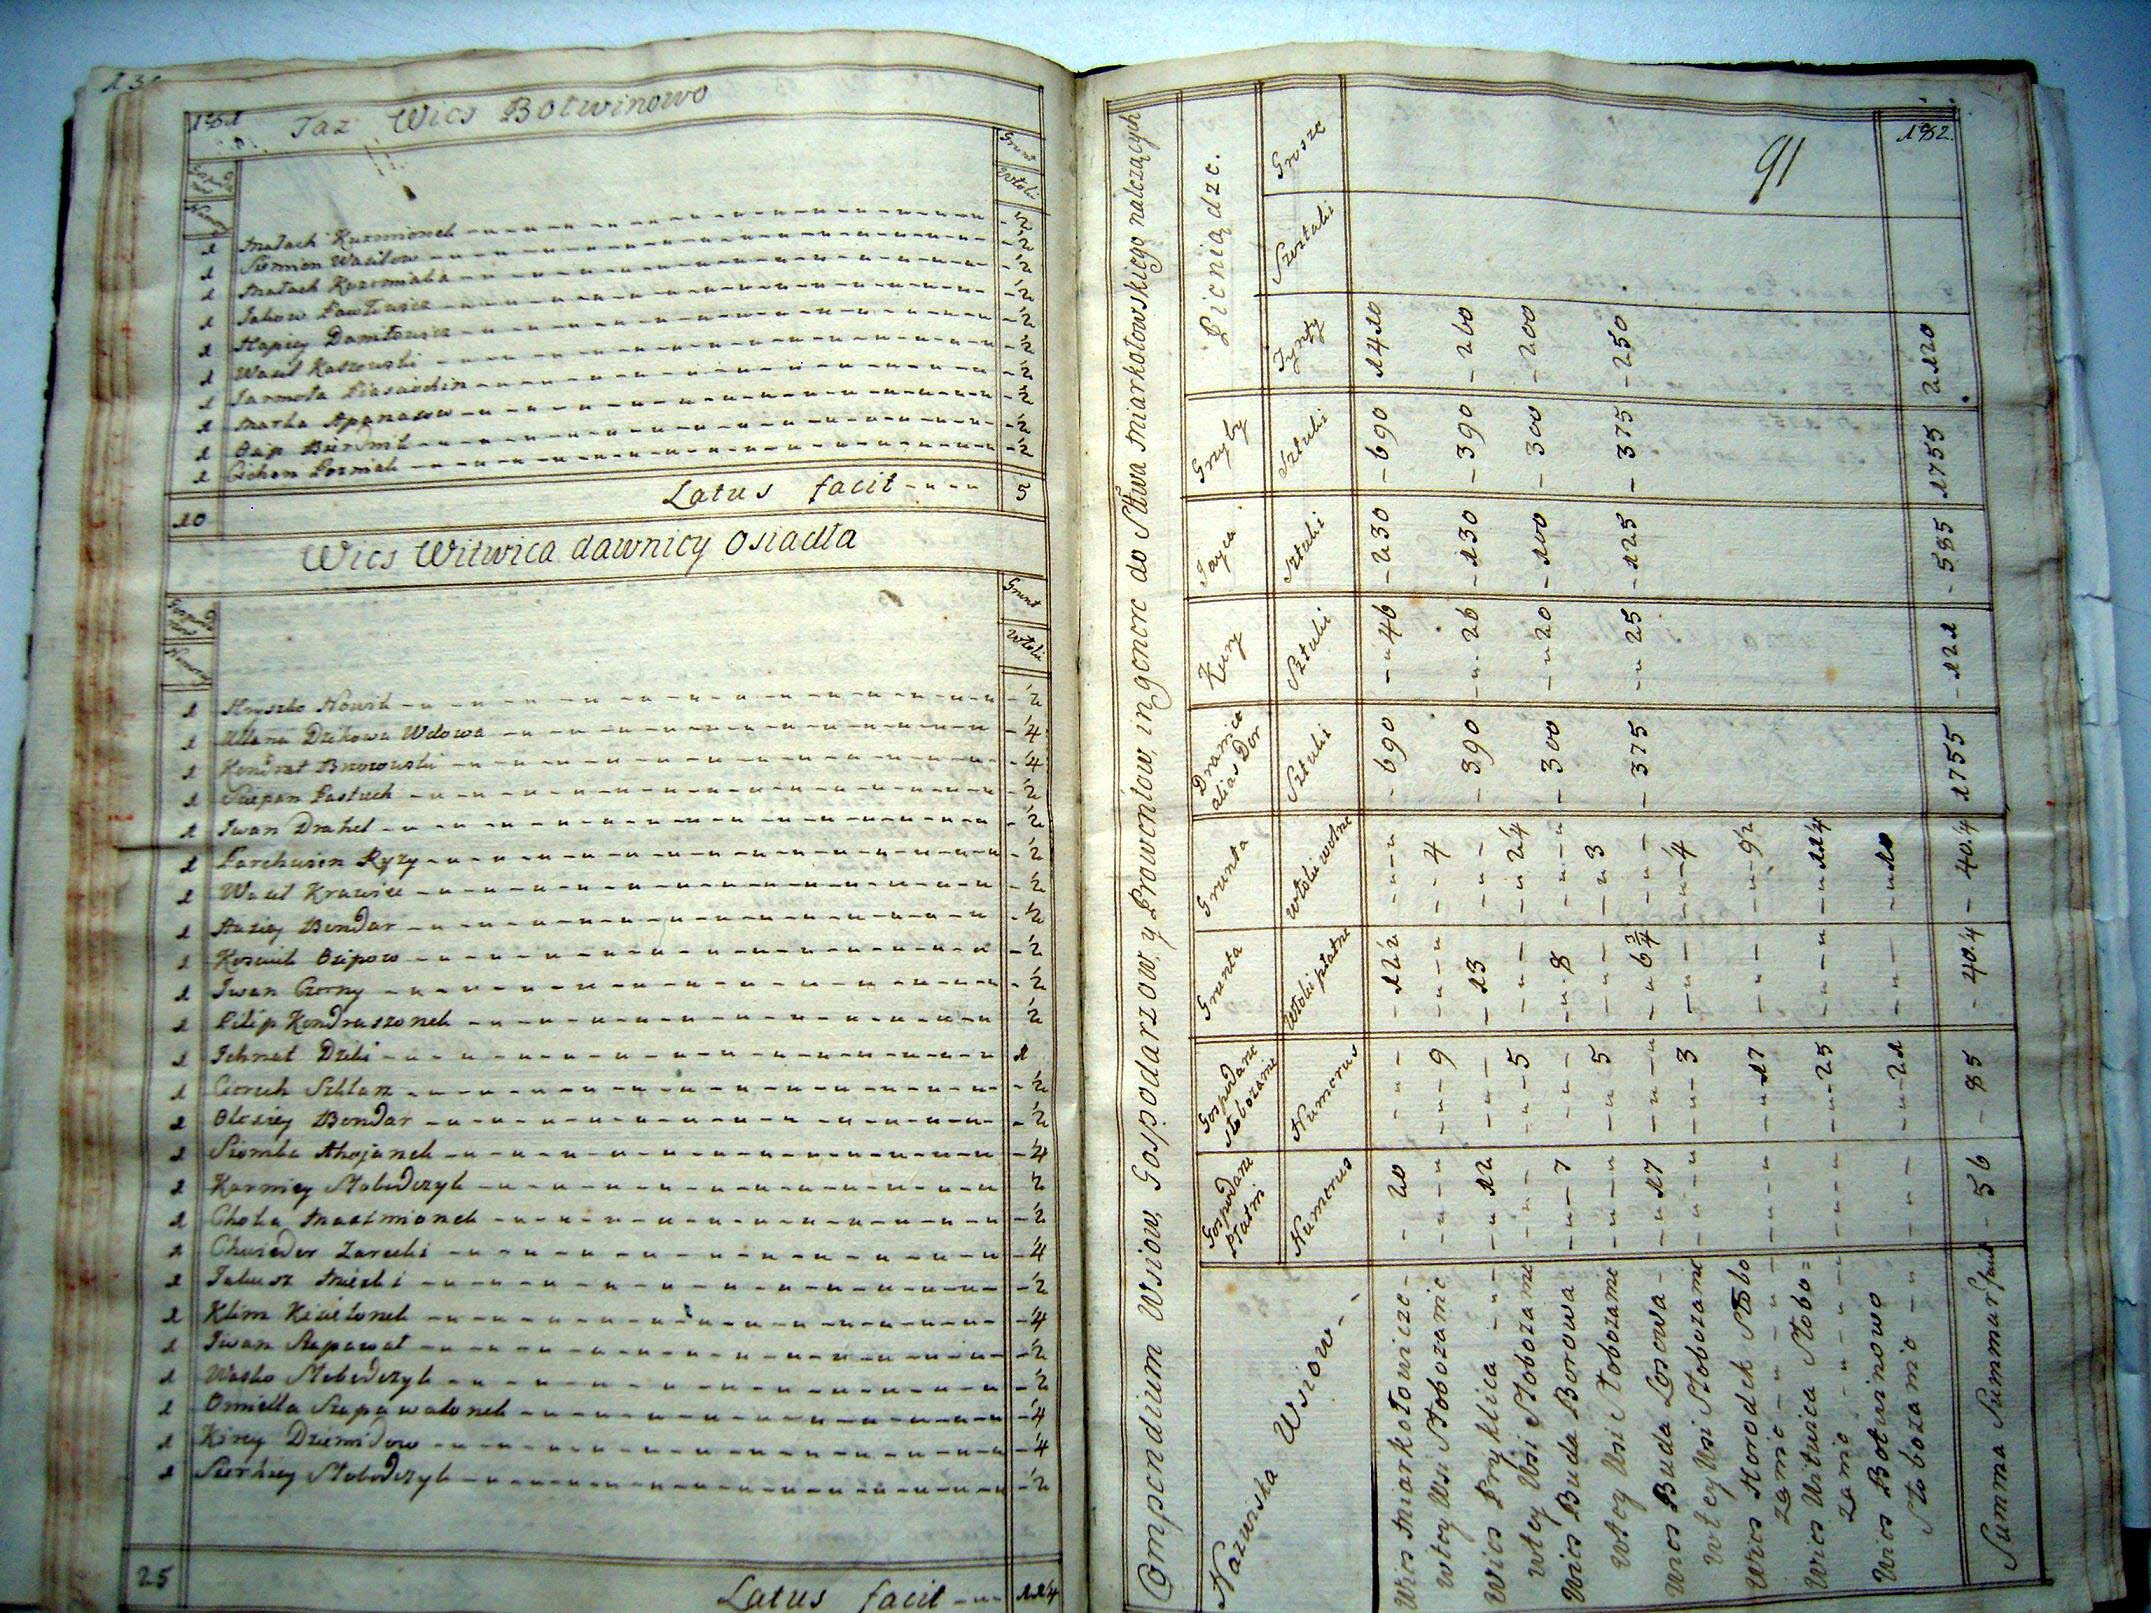 Taż Wies Botwinowo
Grunt
Włoki
1 Małach Kuzmionek ½
1 Siemion Wasilow ½
1 Małach Kuzomiaka ½
1 Jakow Pawłowicz ½
1 Hapiey Daniłowicz ½
1 Wasil Kaszowski ½
1 Jarmoła ½
1 Marko Apanasow ½
1 Osip ½
1 Cichon Pozniak ½
10 Latus facit 5
Wies Witwica dawniey Osiadła
Grunt
Włoki
1 Hryszko Nowik ½
1 Ullana Dzikowa Wdowa ¼
1 Kondrat Brzozowski ¼
1 Sciepan Pastuch ½
1 Iwan Drahel ½
1 Parchwien Ryży ½
1 Wasil Krawiec ½
1 Auziey Bondar ½
1 Kosmik Osipow ½
1 Iwan Czorny ½
1 Pilip Kondraszonek ½
1 Ichnat Dziki 1
1 Szklarz ½
1 Olexiey Bondar ½
1 Siomka ¼
1 Karniey Słobodczyk ½
1 Choka Maximionek ½
1 Chwiedor Zarecki ¼
1 Jakusz ½
1 Klim Kisielonek ¼
1 Iwan Szapawał ½
1 Wasko Słobodczyk ½
1 Omiella Szapawałonek ¼
1 Kirey Dziemidow ¼
1 Sierhiey Słobodczyk ½
25 Latus facit 11¼
Compendium Wsiow, Gospodarzow, y Prowentow, in genere do Sttwa Miarkołowskiego należących
Nazwiska Wsiow
Gospodarze Płatni
Numerus
Gospodarze Słobozanie
Numerus
Grunta
Włoki płatne
Grunta
Włoki wolne
Dranice alias Dor
Sztuki
Kury
Sztuki
Jayca
Sztuki
Grzyby
Sztuki
Pieniądze.
Tynfy
Szostaki
Grosze
91
182.
Wies Miarkołowicze 20 12½ 690 46 230 690 1410
Wtey Wsi Słobozanie 9 4
Wies Pryklica 12 13 390 26 130 390 260
Wtey Wsi Słobozanie 5 2¼
Wies Buda Borowa 7 8 300 20 100 300 200
Wtey Wsi Słobozanie 5 3
Wies Buda Losowa 17 6¾ 375 25 125 375 250
Wtey Wsi Słobozanie 3 ¼
Wies Horodek Słobo
zanie 17 9½
Wies Witwica Słobo=
zanie 25 11¼
Wies Botwinowo
Słobozanie 21 10
Summa Summar facit 56 85 40¼ 40¼ 1755 121 585 1755 2120